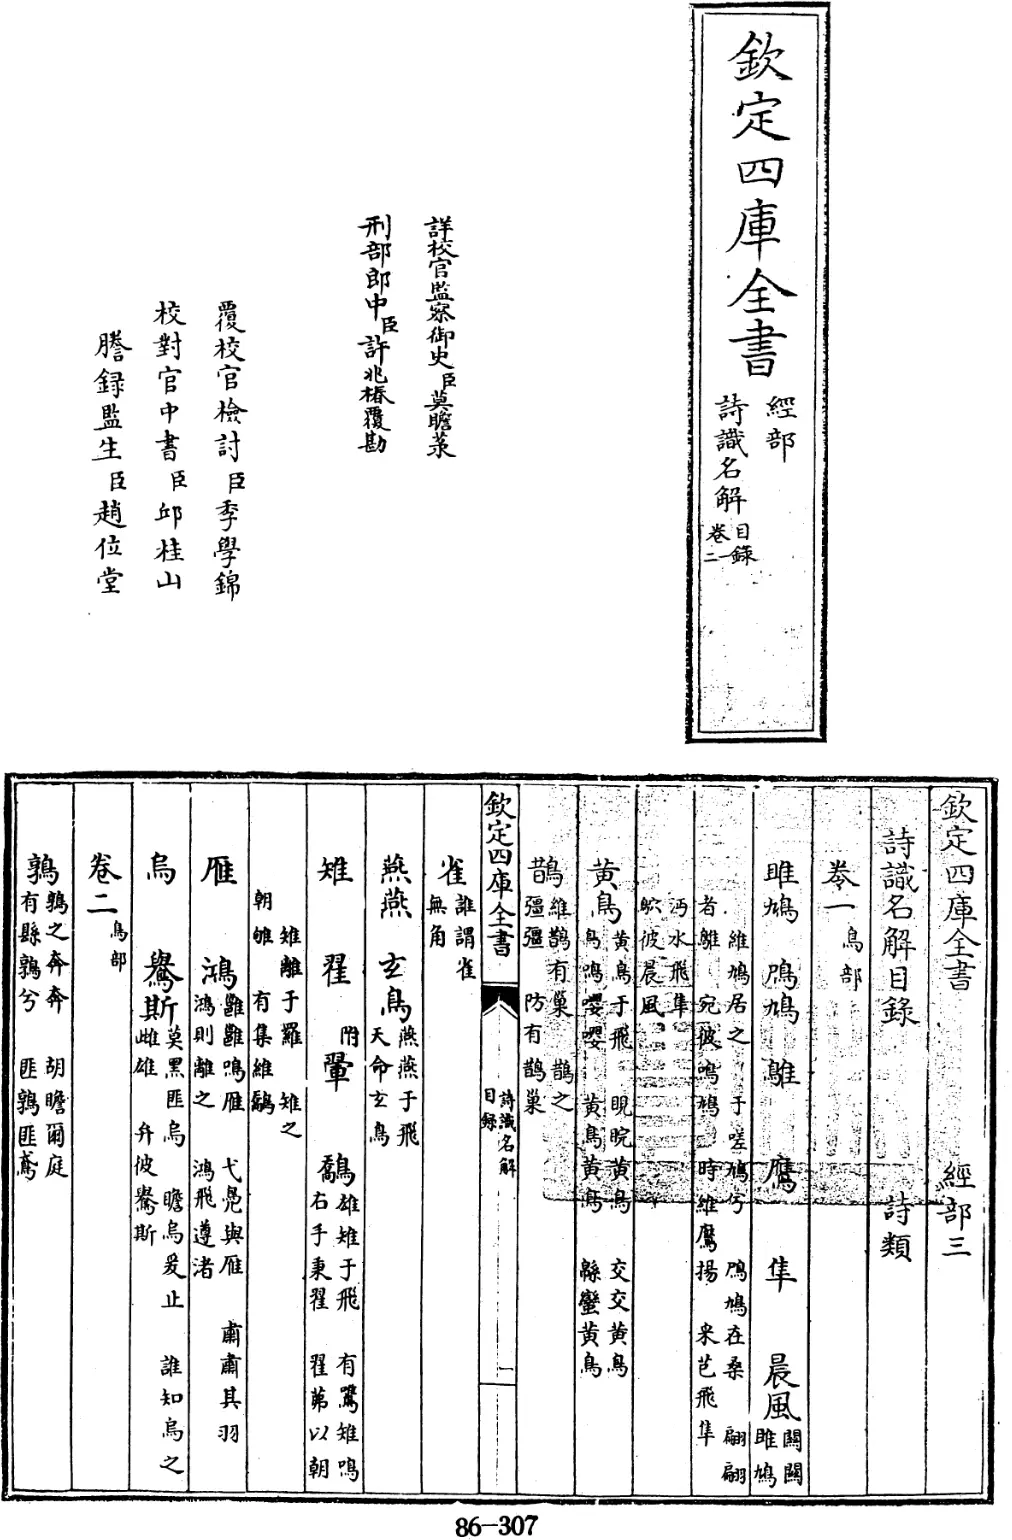 欽定四庫全書
經部
詩識名解
目錄
卷一二
詳校官監察御史臣莫瞻菉
刑部郎中臣許兆椿覆勘
覆校官檢討臣季學錦
校對官中書臣邱桂山
謄錄監生臣趙位堂
欽定四庫全書 經部三
詩識名解目錄 詩類
卷一 鳥部
雎鳩 鳲鳩 鵻 鷹 隼 晨風 關關
雎鳩
維鳩居之 于嗟鳩兮 鳲鳩在桑 翩翩
者鵻 宛彼鳴鳩 時維鷹揚 采芑飛隼
沔水飛隼
鴥彼晨風
黄鳥 黄鳥于飛 睍睆黄鳥 交交黄鳥
鳥鳴嚶嚶 黄鳥黄鳥 緜蠻黄鳥
鵲 維鵲有巢 鵲之
彊彊 防有鵲巢
欽定四庫全書
詩識名解
目錄
一
雀 誰謂雀
無角
燕燕 玄鳥 燕燕于飛
天命玄鳥
雉 翟 附翬 鷮 雄雉于飛 有鷕雉鳴
右手秉翟 翟茀以朝
雉離于羅 雉之
朝雊 有集維鷮
雁 鴻 雝雝鳴雁 弋鳧與雁 肅肅其羽
鴻則離之 鴻飛遵渚
烏 鸒斯 莫黑匪烏 瞻烏爰止 誰知烏之
雌雄 弁彼鸒斯
卷二 鳥部
鶉 鶉之奔奔 胡瞻爾庭
有縣鶉兮 匪鶉匪鳶
86-307